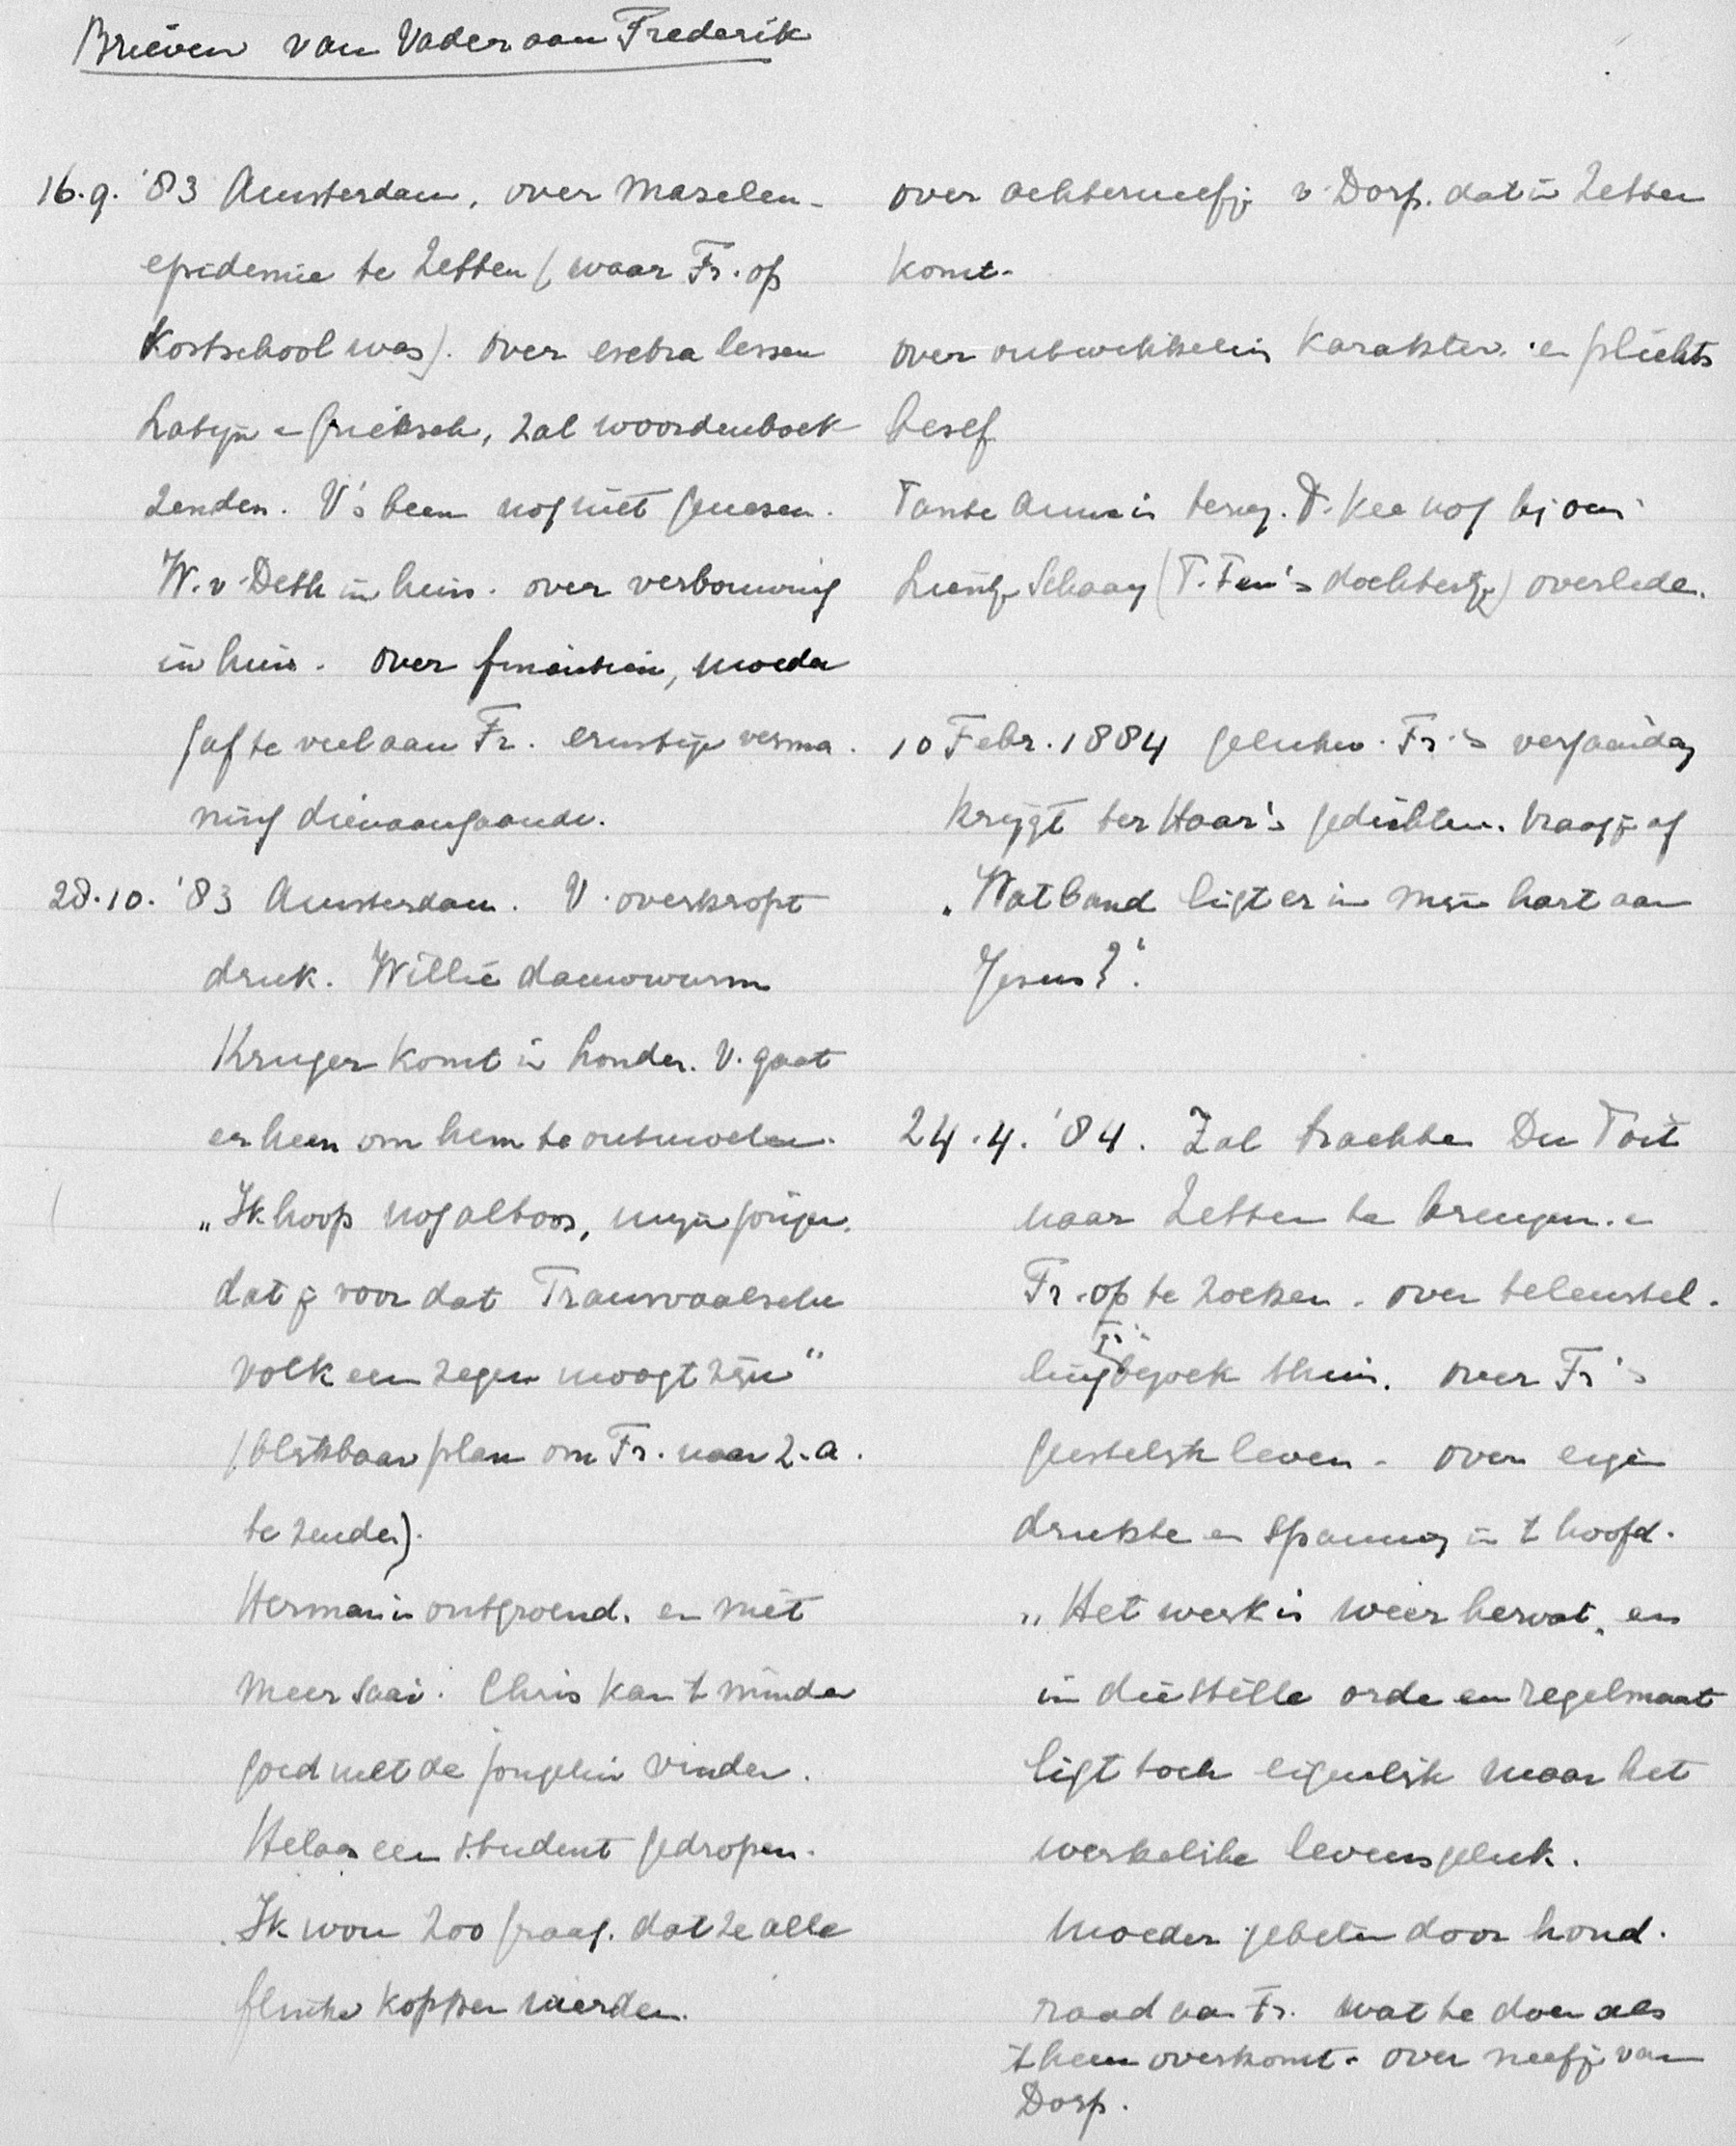 Brieven van Vader aan Frederik
16.9. '83 Amsterdam, over mazelen-
epidemie te Zetten (waar Fr. op
Kostschool was). over extra lessen
Latijn en Grieksch, zal woordenboek
zenden. V's been nog niet genesen.
W. v. Deth in huis. over verbouwing
in huis. over financiën, moeder
gaf te veel aan Fr. ernstige verma-
ning dienaangaande.
28.10. '83 Amsterdam. V. overkropt
druk. Willie dauwwurm
Kruger komt in Londen. V. gaat
er heen om hem te ontmoeten.
„Ik hoop nog altoos, mijn jongen,
dat je voor dat Transvaalsche
volk een zegen moogt zijn"
(blijkbaar plan om Fr. naar Z.A.
te zenden).
Herman is ontgroend. en niet
meer saai. Chris kan 't minder
goed met de jongelui vinden.
Helaas een student gedropen.
Ik wou zoo graag. dat ze alle
flinke koppen wierden.
over achterneefje v. Dorp. dat in Zetten
komt.
over ontwikkeling karakter en plichts
besef
Tante Anna is terug. T. Kee nog bij ons
Schaay (T. dochtertje) overleden.
10 Febr. 1884 gelukw. Fr.'s verjaardag
krijgt ter Haar's gedichten. Vraag je af
„Wat band ligt er in mijn hart aan
Jesus?".
24.4. '84. Zal trachten Du Toit
naar Zetten te brengen. en
Fr. op te zoeken. over teleurstel-
ling Fr's bezoek thuis. over Fr's
geestelijk leven. over eigen
drukte en spanning in 't hoofd.
„Het werk is weer hervat, en
in die stille orde en regelmaat
ligt toch eigenlijk maar het
werkelijke levensgeluk.
Moeder gebeten door hond.
raad aan Fr. wat te doen als
't hem overkomt. over neefje van
Dorp.